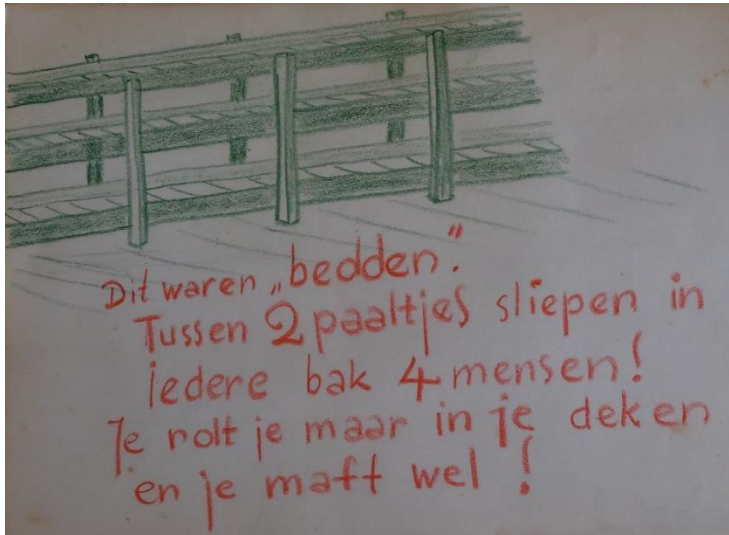 Dit waren „bedden”.
Tussen 2 paaltjes sliepen in
iedere bak 4 mensen!
Je rolt je maar in je deken
en je maft wel!